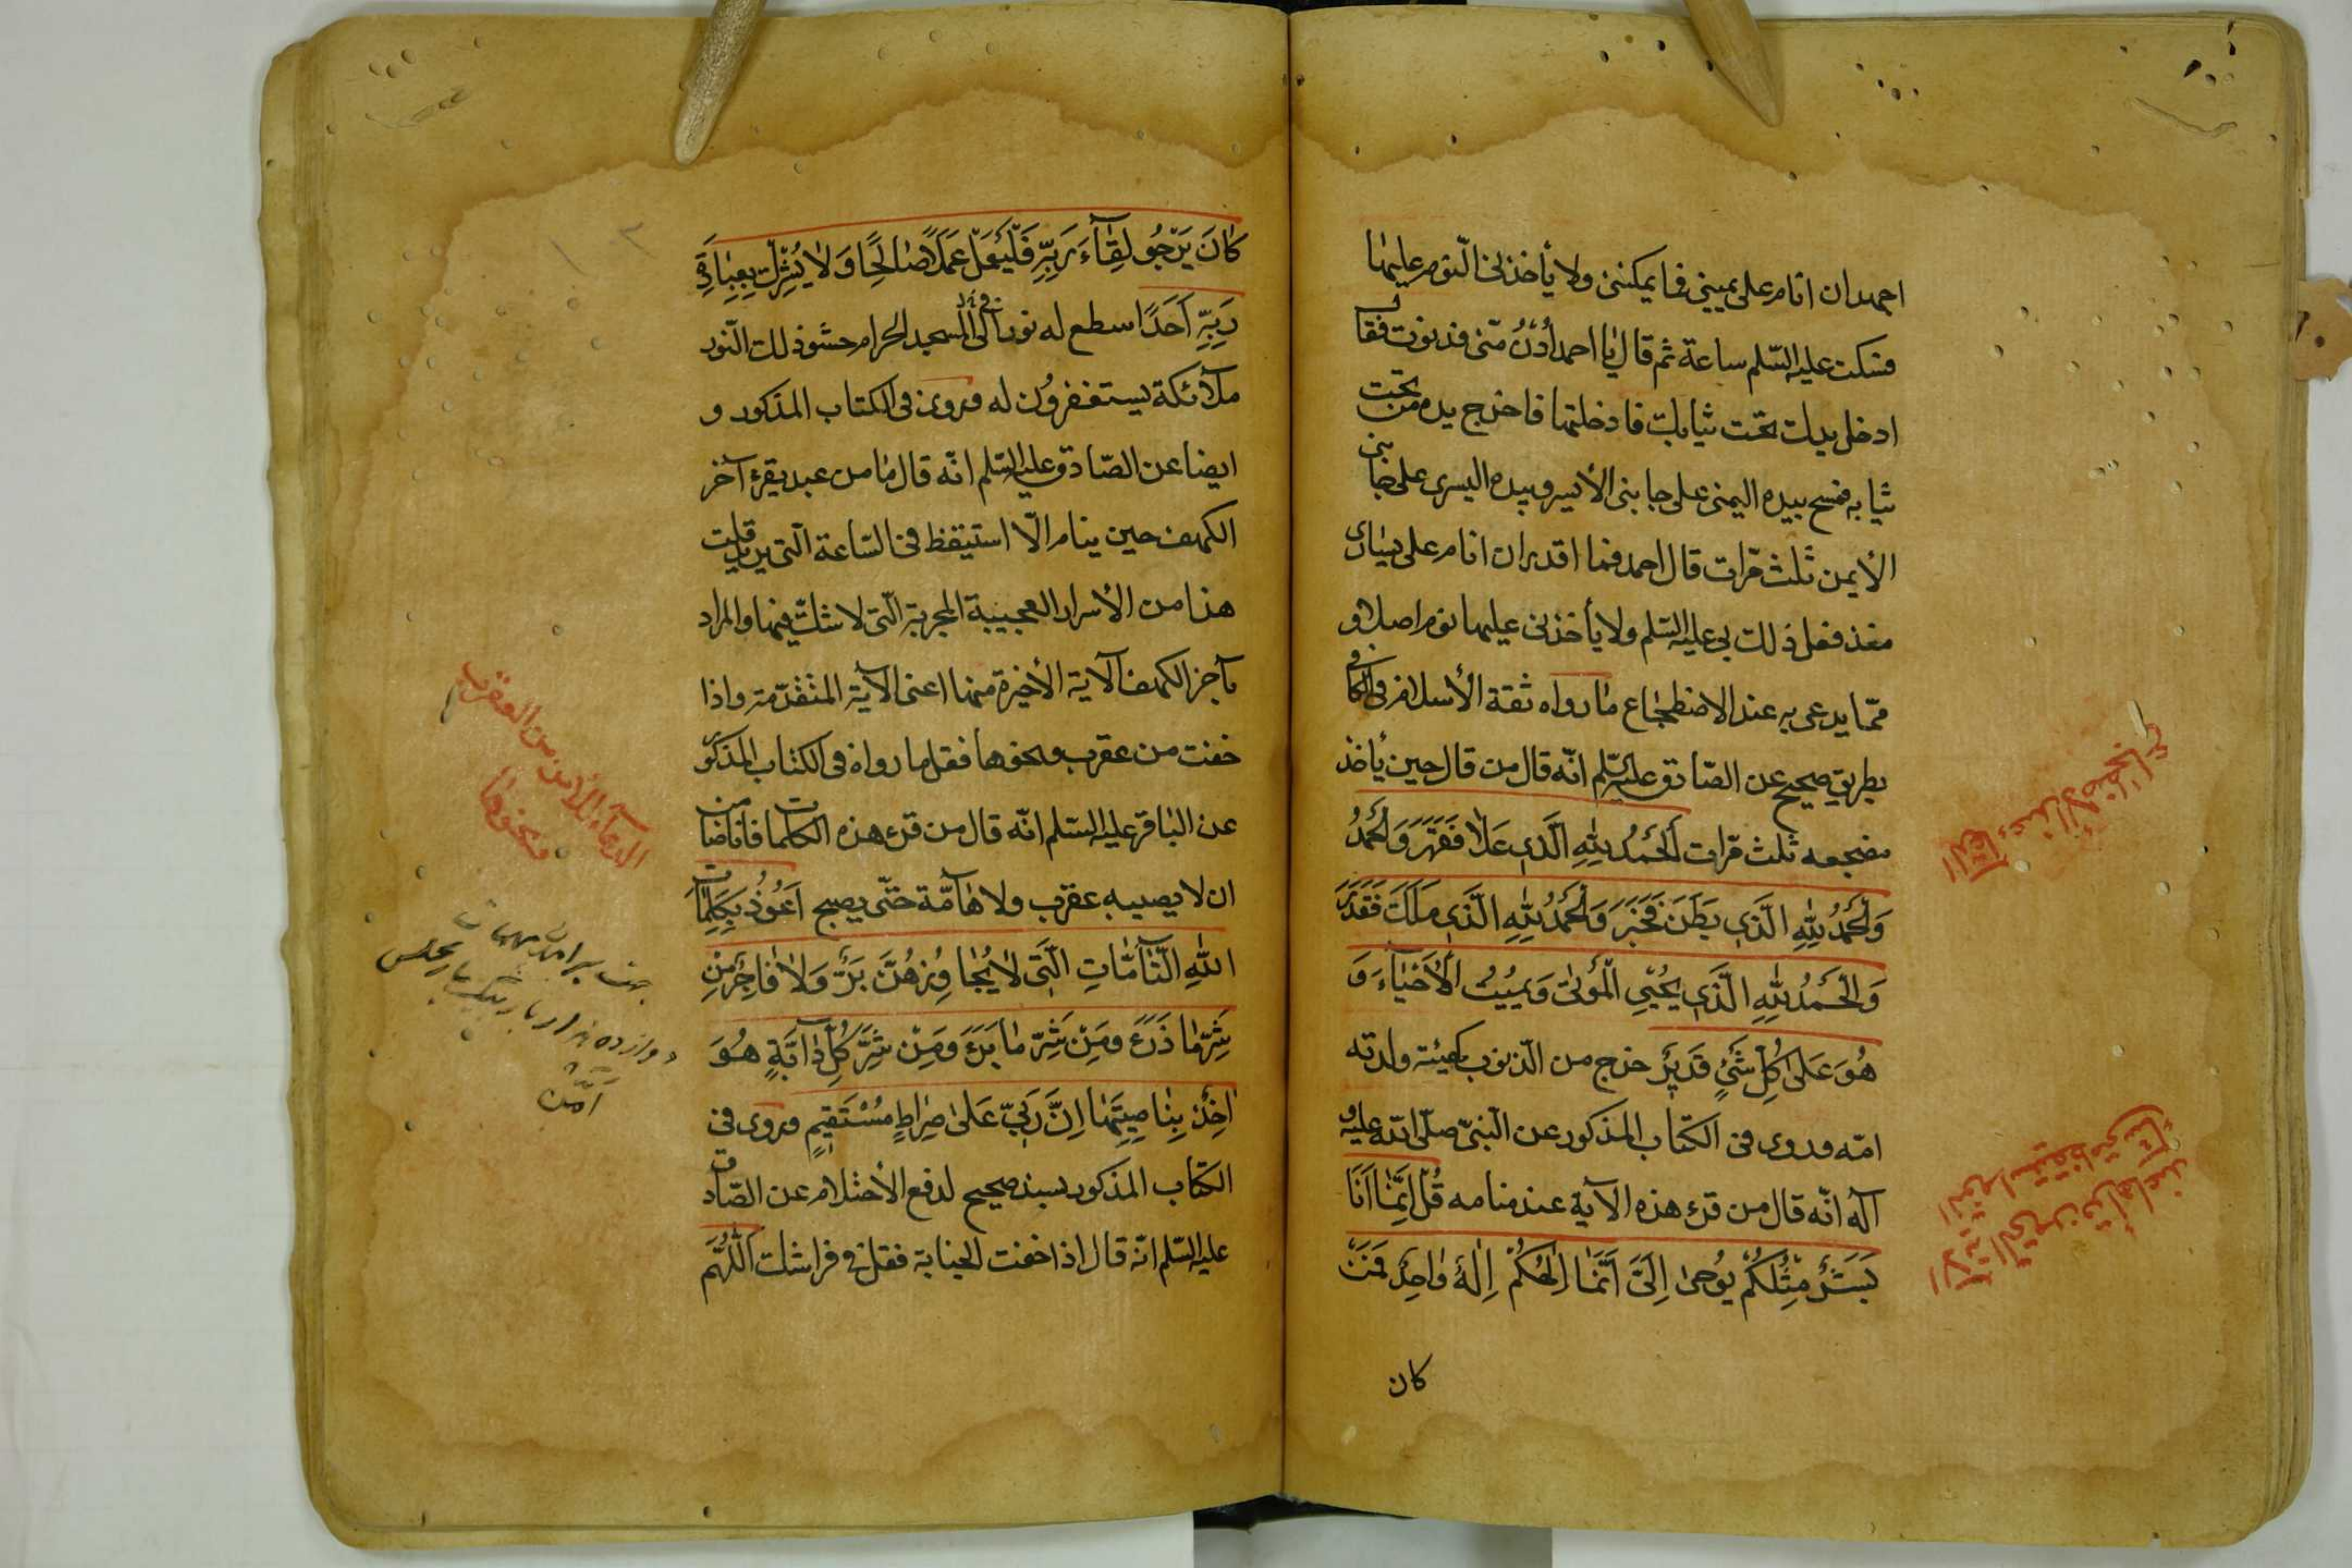 اجهد ان انام على يميني فما يمكنني ولا يأخذني النوم عليها
فسكت عليه السّلم ساعة ثم قال يا احمد اُدْنُ منّى فدنوت فقال
ادخل يدك تحت ثيابك فادخلتها فاخرج يده من تحت
ثيابه فمسح بيده اليمنى على جانبى الأيسر وبيده اليسرى على جانبى
الأيمن ثلث مرّات قال احمد فما اقدر ان انام على يسارى
منذ فعل ذلك بى عليه السّلم ولا يأخذنى عليها نوم اصلا و
ممّا يدعى به عند الاضطجاع ما رواه ثقة الأسلام فى الكافى
بطريق صحيح عن الصّادق عليه السّلم انّه قال من قال حين يأخذ
مضجعه ثلث مرّات اَلْحَمْدُ لِلّٰهِ الَّذى عَلٰا فَقَهَرَ وَلْحَمْدُ
وَلْحَمْدُ لِلّٰهِ الَّذى بَطَنَ فَخَبَرَ وَلْحَمْدُ لِلّٰهِ الَّذى مَلَكَ فَقَدَرَ
وَالْحَمْدُ لِلّٰهِ الَّذى يُحْيِى الْمَوْتىٰ وَيُمِيتُ الْأَحْيٰاءَ وَ
هُوَ عَلىٰ كُلِّ شَىْءٍ قَديرٌ خرج من الذّنوب كهيئة ولدته
امّه وروى فى الكتاب المذكور عن النّبىّ صلّى اللّه عليه و
آله انّه قال من قرء هذه الآية عند منامه قُلْ اِنَّمٰا اَنَا
بَشَرٌ مِثْلُكُمْ يُوحىٰ اِلَىَّ اَنَّمٰا اِلٰهُكُمْ اِلٰهٌ وٰاحِدٌ فَمَنْ
كان
الدّعاء عند الأضطجاع
كٰانَ يَرْجُو لِقٰاءَ رَبِّهِ فَلْيَعْمَلْ عَمَلًا صٰالِحًا وَلٰا يُشْرِكْ بِعِبٰادَةِ
رَبِّهِ اَحَدًا سطع له نور الى المسجد الحرام حشو ذلك النّور
ملآئكة يستغفرون له وروى فى الكتاب المذكور و
ايضا عن الصّادق عليه السّلم انّه قال ما من عبد يقرء آخر
الكهف حين ينام الّا استيقظ فى السّاعة الّتى يريد قلت
هذا من الأسرار العجيبة المجربة الّتى لا شكّ فيها والمراد
بآخر الكهف الآية الأخيرة منها اعنى الآية المتقدّمة واذا
خفت من عقرب ونحوها فقل ما رواه فى الكتاب المذكور
عن الباقر عليه السّلم انّه قال من قرء هذه الكلمات فانا ضامن
ان لا يصيبه عقرب ولا هامّة حتّى يصبح اَعُوذُ بِكَلِمٰاتِ
اللّٰهِ التّٰامّٰاتِ الَّتى لٰا يُجٰاوِزُهُنَّ بَرٌّ وَلٰا فٰاجِرٌ مِنْ
شَرِّ مٰا ذَرَءَ وَمِنْ شَرِّ مٰا بَرَءَ وَمِنْ شَرِّ كُلِّ دٰابَّةٍ هُوَ
اٰخِذٌ بِنٰاصِيَتِهٰا اِنَّ رَبّى عَلىٰ صِرٰاطٍ مُسْتَقيمٍ وروى فى
الكتاب المذكور بسند صحيح لدفع الأحتلام عن الصّادق
عليه السّلم انّه قال اذا خفت الجنابة فقل فى فراشك اَللّٰهُمَّ
الدعاء للأمن من العقرب
ونحوها